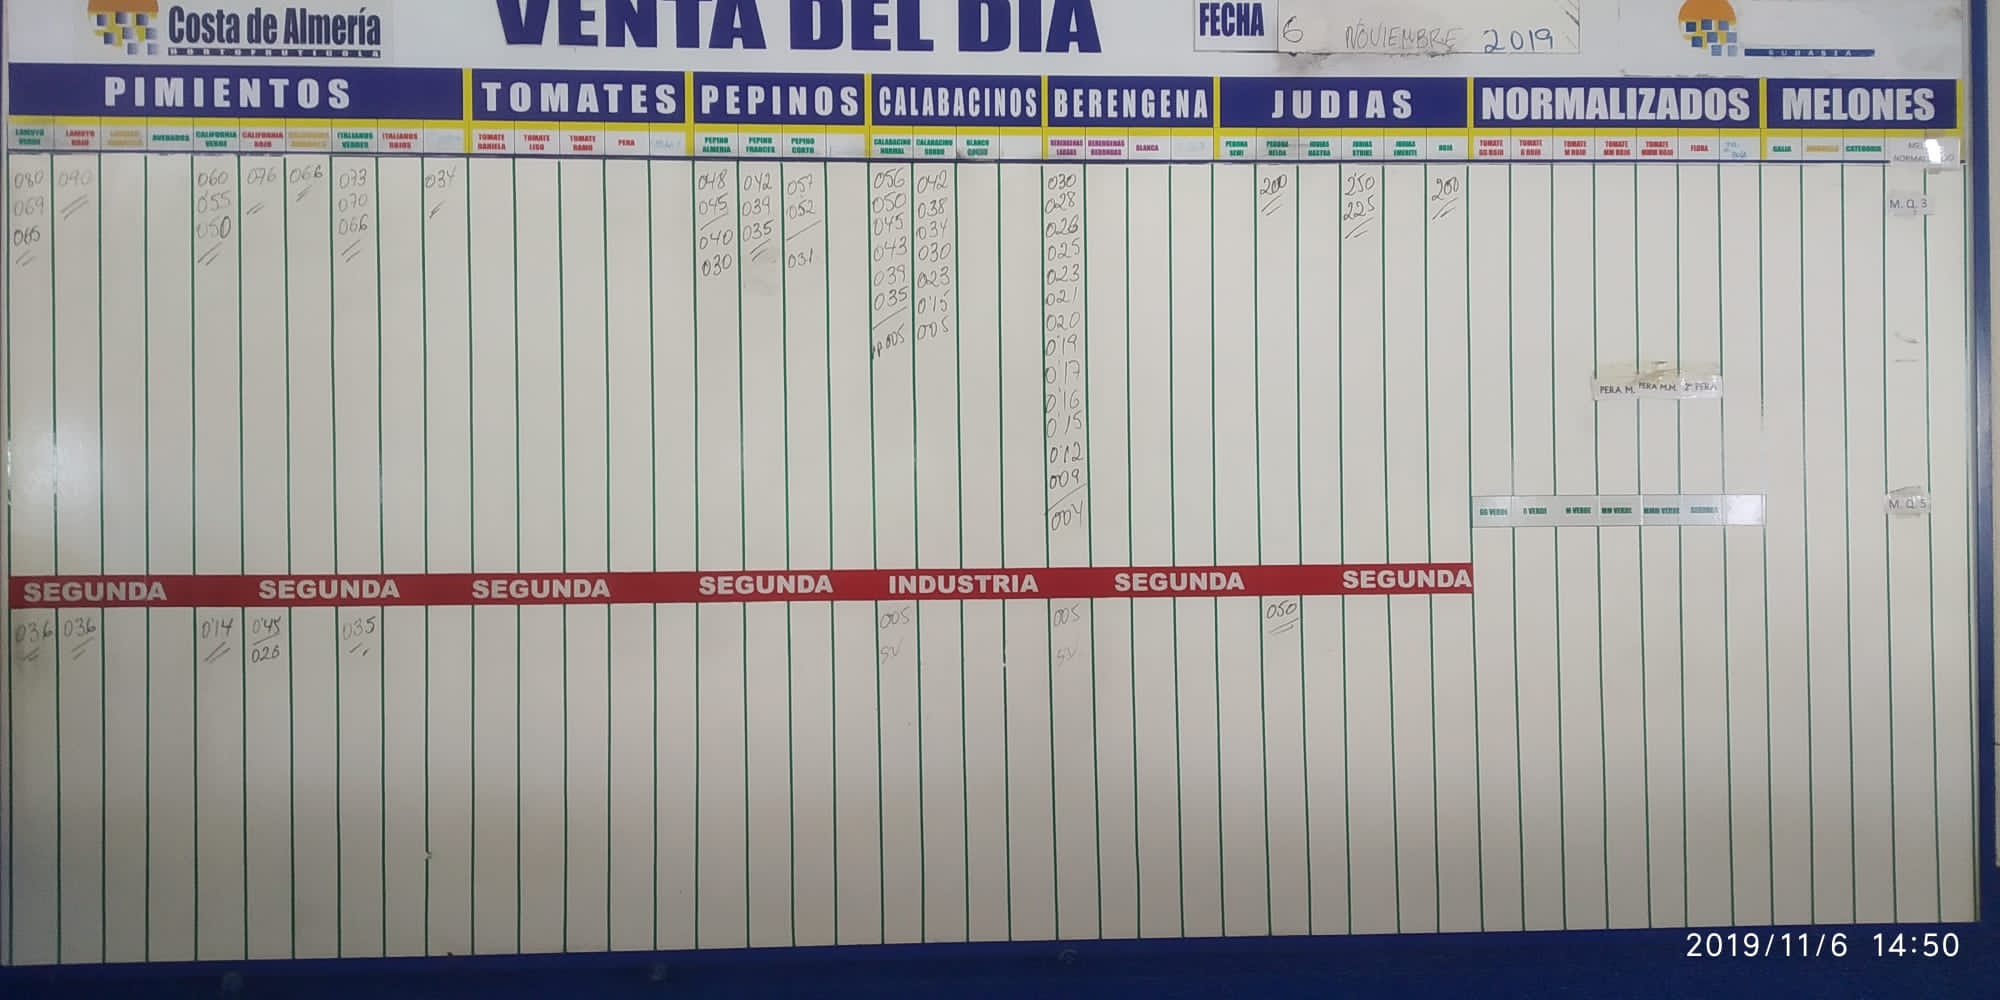 Costa de Almería
HORTOFRUTICOLA
VENTA DEL DIA
FECHA
6 NOVIEMBRE 2019
SUBASTA
PIMIENTOS
TOMATES
PEPINOS
CALABACINOS
BERENGENA
JUDIAS
NORMALIZADOS
MELONES
LAMUYO VERDE
LAMUYO ROJO
CALIFORNIA VERDE
CALIFORNIA ROJO
ITALIANOS VERDES
ITALIANOS ROJOS
TOMATE DANIELA
TOMATE LISO
TOMATE RAMO
PERA
PEPINO ALMERIA
PEPINO FRANCES
PEPINO CORTO
CALABACINO NORMAL
CALABACINO GORDO
BLANCO GORDO
BERENGENAS LARGAS
BERENGENAS REDONDAS
BLANCA
PERONA SEMI
PERONA HELDA
JUDIAS RASTRA
JUDIAS STRIKE
JUDIAS EMERITE
ROJA
TOMATE GG ROJO
TOMATE G ROJO
TOMATE M ROJO
TOMATE MM ROJO
TOMATE MMM ROJO
FLORA
GALIA
AMARILLO
CATEGORIA
080 090 060 076 066 073 034 048 042 057 056 042 030 200 250 200
069 055 070 045 039 052 050 038 028 225
065 050 066 040 035 045 034 026
030 031 043 030 025
039 023 023
035 0'15 021
005 005 020
0'19
0'17
0'16
0'15
0'12
009
004
M. Q. 3
PERA M. PERA M.M. 2ª PERA
GG VERDE G VERDE M VERDE MM VERDE MMM VERDE
M. Q. 5
SEGUNDA SEGUNDA SEGUNDA SEGUNDA INDUSTRIA SEGUNDA SEGUNDA
036 036 0'14 0'45 035 005 005 050
026 SV SV
2019/11/6 14:50